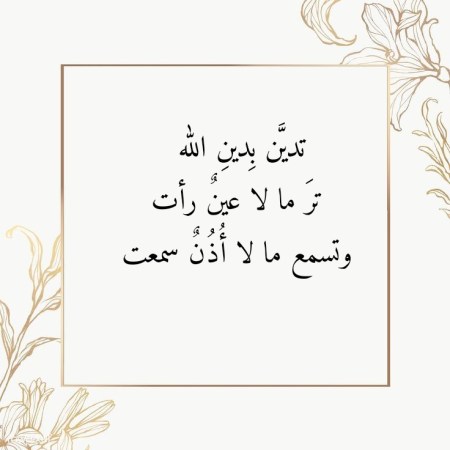 تديَّن بِدينِ الله
ترَ ما لا عينٌ رأت
وتسمع ما لا أُذُنٌ سمعت